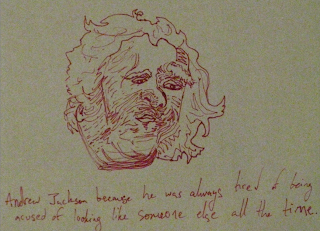 Andrew Jackson because he was always tired of being
acused of looking like someone else all the time.